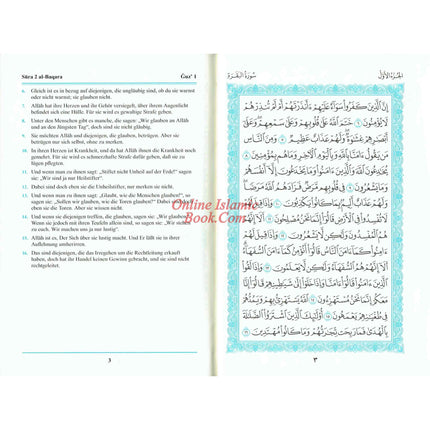 Sūra 2 al-Baqara Ǧuzʾ 1
6. Gleich ist es in bezug auf diejenigen, die ungläubig sind, ob du sie warnst
oder nicht warnst; sie glauben nicht.
7. Allāh hat ihre Herzen und ihr Gehör versiegelt, über ihrem Augenlicht
befindet sich eine Hülle. Für sie wird es gewaltige Strafe geben.
8. Unter den Menschen gibt es manche, die sagen: „Wir glauben an Allāh
und an den Jüngsten Tag“, doch sind sie nicht gläubig.
9. Sie möchten Allāh und diejenigen, die glauben, betrügen. Aber sie
betrügen nur sich selbst, ohne zu merken.
10. In ihren Herzen ist Krankheit, und da hat Allāh ihnen die Krankheit noch
gemehrt. Für sie wird es schmerzhafte Strafe dafür geben, daß sie zu
lügen pflegten.
11. Und wenn man zu ihnen sagt: „Stiftet nicht Unheil auf der Erde!“ sagen
sie: „Wir sind ja nur Heilstifter“.
12. Dabei sind doch eben sie die Unheilstifter, nur merken sie nicht.
13. Und wenn man zu ihnen sagt: „Glaubt, wie die Menschen glauben!“, so
sagen sie: „Sollen wir glauben, wie die Toren glauben?“ Dabei sind doch
eben sie die Toren, aber sie wissen nicht.
14. Und wenn sie diejenigen treffen, die glauben, sagen sie: „Wir glauben“.
Wenn sie jedoch mit ihren Teufeln allein sind, so sagen sie: „Wir stehen
zu euch. Wir machen uns ja nur lustig“.
15. Allāh ist es, Der Sich über sie lustig macht. Und Er läßt sie in ihrer
Auflehnung umherirren.
16. Das sind diejenigen, die das Irregehen um die Rechtleitung erkauft
haben, doch hat ihr Handel keinen Gewinn gebracht, und sie sind nicht
rechtgeleitet.
3
الجزء الأول سورة البقرة
إِنَّ الَّذِينَ كَفَرُوا سَوَاءٌ عَلَيْهِمْ ءَأَنذَرْتَهُمْ أَمْ لَمْ تُنذِرْهُمْ
لَا يُؤْمِنُونَ ٦ خَتَمَ اللَّهُ عَلَىٰ قُلُوبِهِمْ وَعَلَىٰ سَمْعِهِمْ وَعَلَىٰ
أَبْصَٰرِهِمْ غِشَٰوَةٌ وَلَهُمْ عَذَابٌ عَظِيمٌ ٧ وَمِنَ النَّاسِ
مَن يَقُولُ ءَامَنَّا بِاللَّهِ وَبِالْيَوْمِ الْءَاخِرِ وَمَا هُم بِمُؤْمِنِينَ ٨
يُخَٰدِعُونَ اللَّهَ وَالَّذِينَ ءَامَنُوا وَمَا يَخْدَعُونَ إِلَّا أَنفُسَهُمْ
وَمَا يَشْعُرُونَ ٩ فِي قُلُوبِهِم مَّرَضٌ فَزَادَهُمُ اللَّهُ مَرَضًا
وَلَهُمْ عَذَابٌ أَلِيمٌ بِمَا كَانُوا يَكْذِبُونَ ١٠ وَإِذَا قِيلَ لَهُمْ
لَا تُفْسِدُوا فِي الْأَرْضِ قَالُوا إِنَّمَا نَحْنُ مُصْلِحُونَ ١١ أَلَا إِنَّهُمْ
هُمُ الْمُفْسِدُونَ وَلَٰكِن لَّا يَشْعُرُونَ ١٢ وَإِذَا قِيلَ لَهُمْ
ءَامِنُوا كَمَا ءَامَنَ النَّاسُ قَالُوا أَنُؤْمِنُ كَمَا ءَامَنَ السُّفَهَاءُ
أَلَا إِنَّهُمْ هُمُ السُّفَهَاءُ وَلَٰكِن لَّا يَعْلَمُونَ ١٣ وَإِذَا لَقُوا
الَّذِينَ ءَامَنُوا قَالُوا ءَامَنَّا وَإِذَا خَلَوْا إِلَىٰ شَيَٰطِينِهِمْ قَالُوا إِنَّا
مَعَكُمْ إِنَّمَا نَحْنُ مُسْتَهْزِءُونَ ١٤ اللَّهُ يَسْتَهْزِئُ بِهِمْ وَيَمُدُّهُمْ
فِي طُغْيَٰنِهِمْ يَعْمَهُونَ ١٥ أُولَٰئِكَ الَّذِينَ اشْتَرَوُا الضَّلَٰلَةَ
بِالْهُدَىٰ فَمَا رَبِحَت تِّجَٰرَتُهُمْ وَمَا كَانُوا مُهْتَدِينَ ١٦
٣
Online Islamic
Book.Com